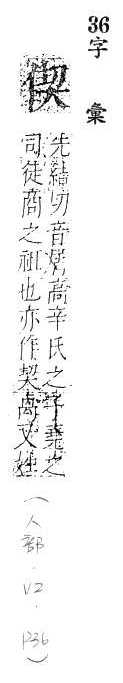 36
字彙
偰
先結切音屑高辛氏之子堯之
司徒商之祖也亦作契卨又姓
(人部.V2.P36)